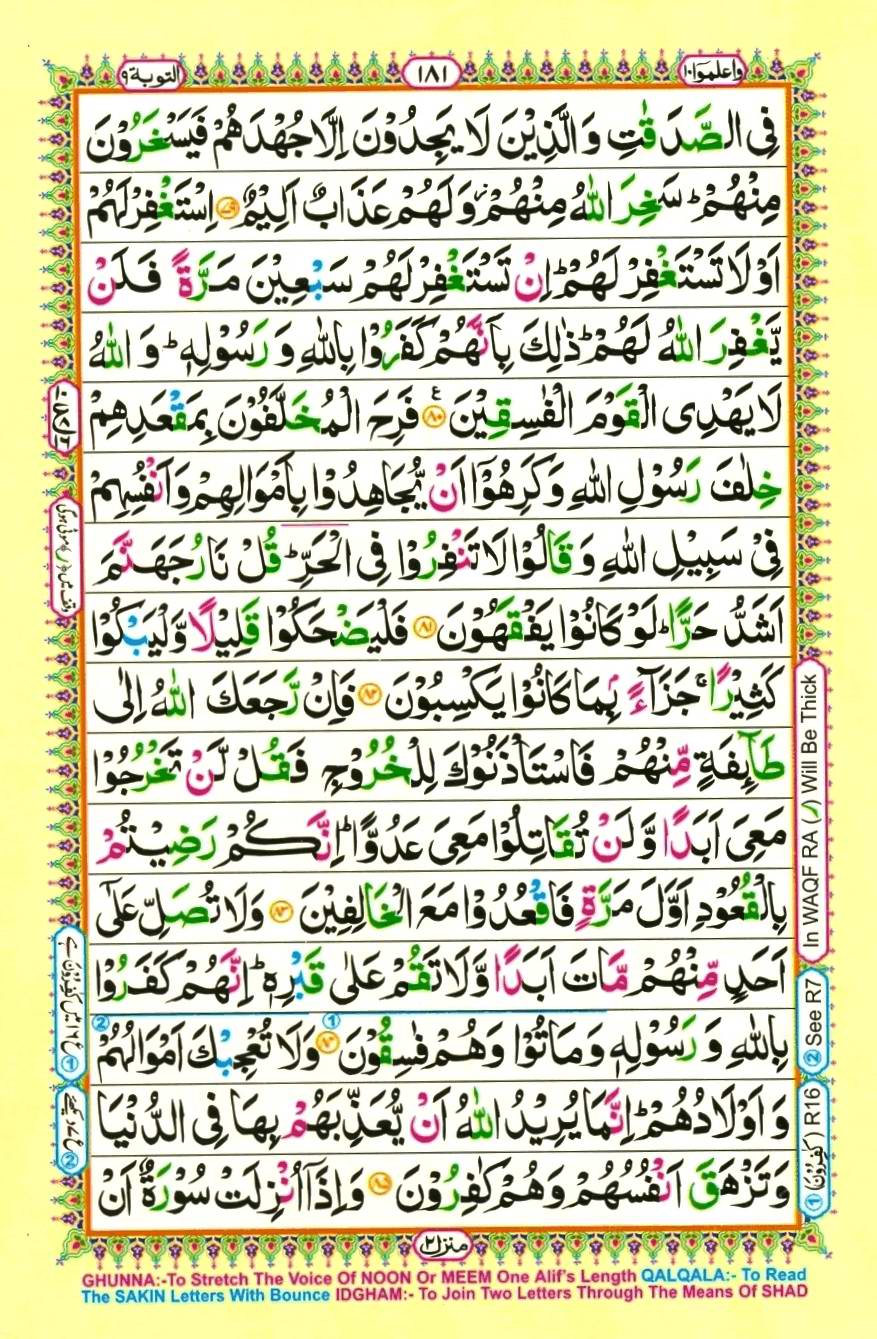 التوبة ٩
١٨١
واعلموا ١٠
فِی الصَّدَقٰتِ وَالَّذِیْنَ لَا یَجِدُوْنَ اِلَّا جُهْدَهُمْ فَیَسْخَرُوْنَ
مِنْهُمْ ؕ سَخِرَ اللّٰهُ مِنْهُمْ ؗ وَلَهُمْ عَذَابٌ اَلِیْمٌ ﴿۷۹﴾ اِسْتَغْفِرْ لَهُمْ
اَوْ لَا تَسْتَغْفِرْ لَهُمْ ؕ اِنْ تَسْتَغْفِرْ لَهُمْ سَبْعِیْنَ مَرَّةً فَلَنْ
یَّغْفِرَ اللّٰهُ لَهُمْ ؕ ذٰلِكَ بِاَنَّهُمْ كَفَرُوْا بِاللّٰهِ وَ رَسُوْلِهٖ ؕ وَ اللّٰهُ
لَا یَهْدِی الْقَوْمَ الْفٰسِقِیْنَ ﴿۸۰﴾ ع فَرِحَ الْمُخَلَّفُوْنَ بِمَقْعَدِهِمْ
خِلٰفَ رَسُوْلِ اللّٰهِ وَكَرِهُوْۤا اَنْ یُّجَاهِدُوْا بِاَمْوَالِهِمْ وَاَنْفُسِهِمْ
فِیْ سَبِیْلِ اللّٰهِ وَ قَالُوْا لَا تَنْفِرُوْا فِی الْحَرِّ ؕ قُلْ نَارُ جَهَنَّمَ
اَشَدُّ حَرًّا ؕ لَوْ كَانُوْا یَفْقَهُوْنَ ﴿۸۱﴾ فَلْیَضْحَكُوْا قَلِیْلًا وَّلْیَبْكُوْا
كَثِیْرًا ۚ جَزَآءًۢ بِمَا كَانُوْا یَكْسِبُوْنَ ﴿۸۲﴾ فَاِنْ رَّجَعَكَ اللّٰهُ اِلٰی
طَآىِٕفَةٍ مِّنْهُمْ فَاسْتَاْذَنُوْكَ لِلْخُرُوْجِ فَقُلْ لَّنْ تَخْرُجُوْا
مَعِیَ اَبَدًا وَّلَنْ تُقَاتِلُوْا مَعِیَ عَدُوًّا ؕ اِنَّكُمْ رَضِیْتُمْ
بِالْقُعُوْدِ اَوَّلَ مَرَّةٍ فَاقْعُدُوْا مَعَ الْخَالِفِیْنَ ﴿۸۳﴾ وَلَا تُصَلِّ عَلٰۤی
اَحَدٍ مِّنْهُمْ مَّاتَ اَبَدًا وَّلَا تَقُمْ عَلٰی قَبْرِهٖ ؕ اِنَّهُمْ كَفَرُوْا
بِاللّٰهِ وَ رَسُوْلِهٖ وَمَاتُوْا وَهُمْ فٰسِقُوْنَ ﴿۸۴﴾ وَلَا تُعْجِبْكَ اَمْوَالُهُمْ
وَ اَوْلَادُهُمْ ؕ اِنَّمَا یُرِیْدُ اللّٰهُ اَنْ یُّعَذِّبَهُمْ بِهَا فِی الدُّنْیَا
وَتَزْهَقَ اَنْفُسُهُمْ وَهُمْ كٰفِرُوْنَ ﴿۸۵﴾ وَاِذَاۤ اُنْزِلَتْ سُوْرَةٌ اَنْ
In WAQF RA (ر) Will Be Thick
② See R7
① (كٰفِرُوْنَ) R16
منزل ٢
GHUNNA:-To Stretch The Voice Of NOON Or MEEM One Alif's Length QALQALA:- To Read
The SAKIN Letters With Bounce IDGHAM:- To Join Two Letters Through The Means Of SHAD